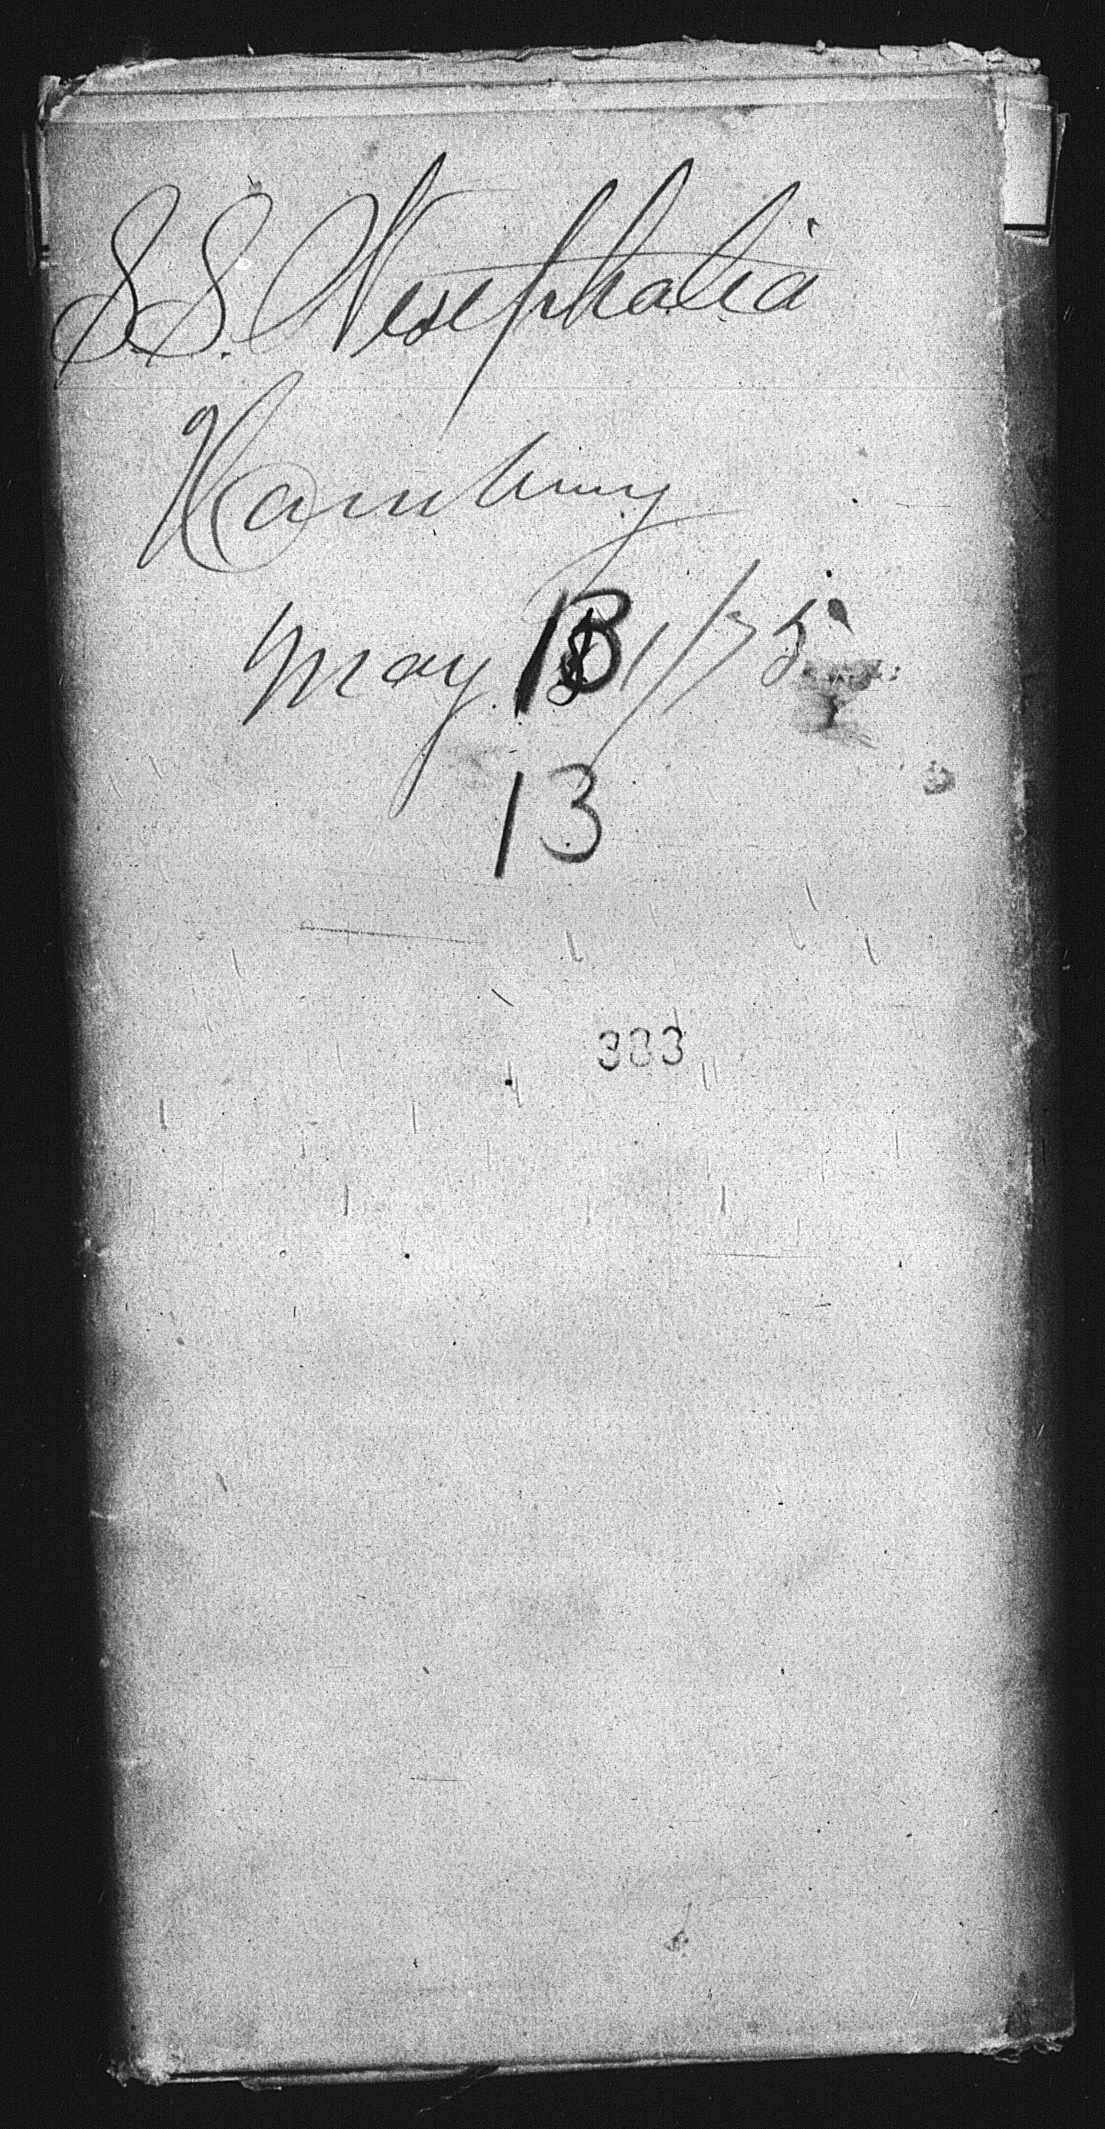 S.S. Westphalia
Hamburg
May 13/75
13
383